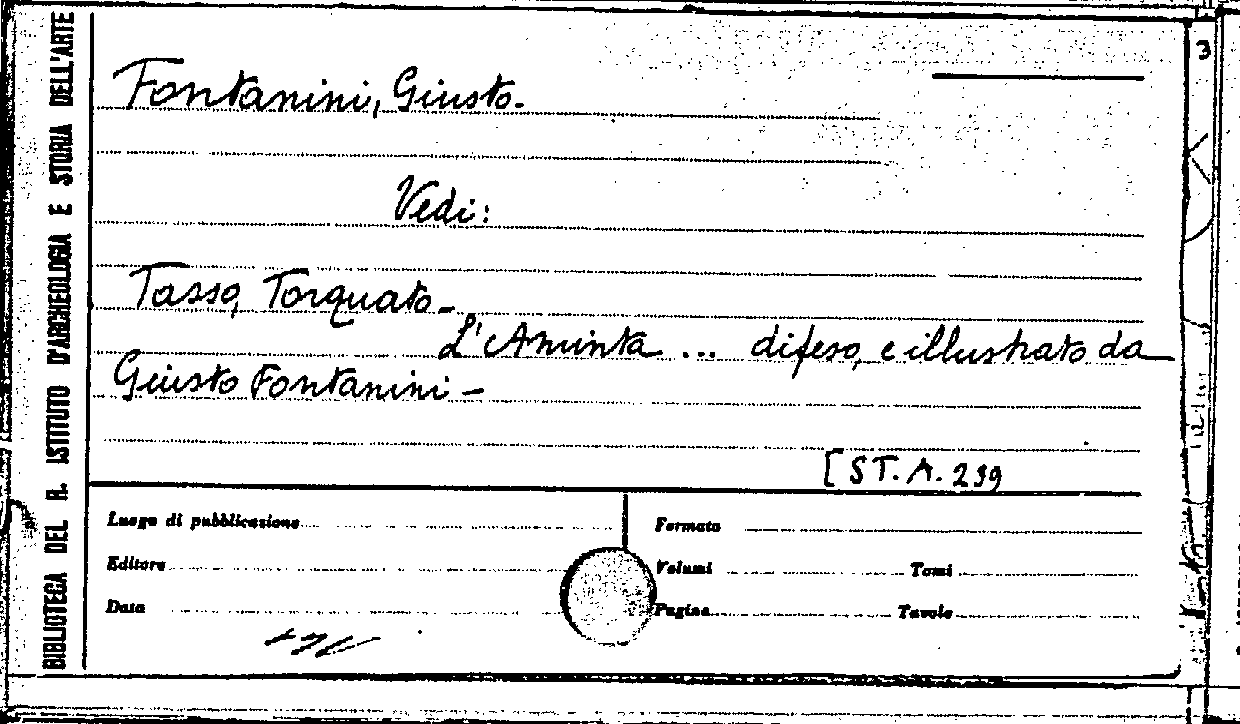 BIBLIOTECA DEL R. ISTITUTO D'ARCHEOLOGIA E STORIA DELL'ARTE
Fontanini, Giusto.
Vedi:
Tasso, Torquato-
L'Aminta ... difeso, e illustrato da
Giusto Fontanini-
[ST. A. 239
Luogo di pubblicazione
Formato
Editore
Volumi Tomi
Data
Pagine Tavole
3